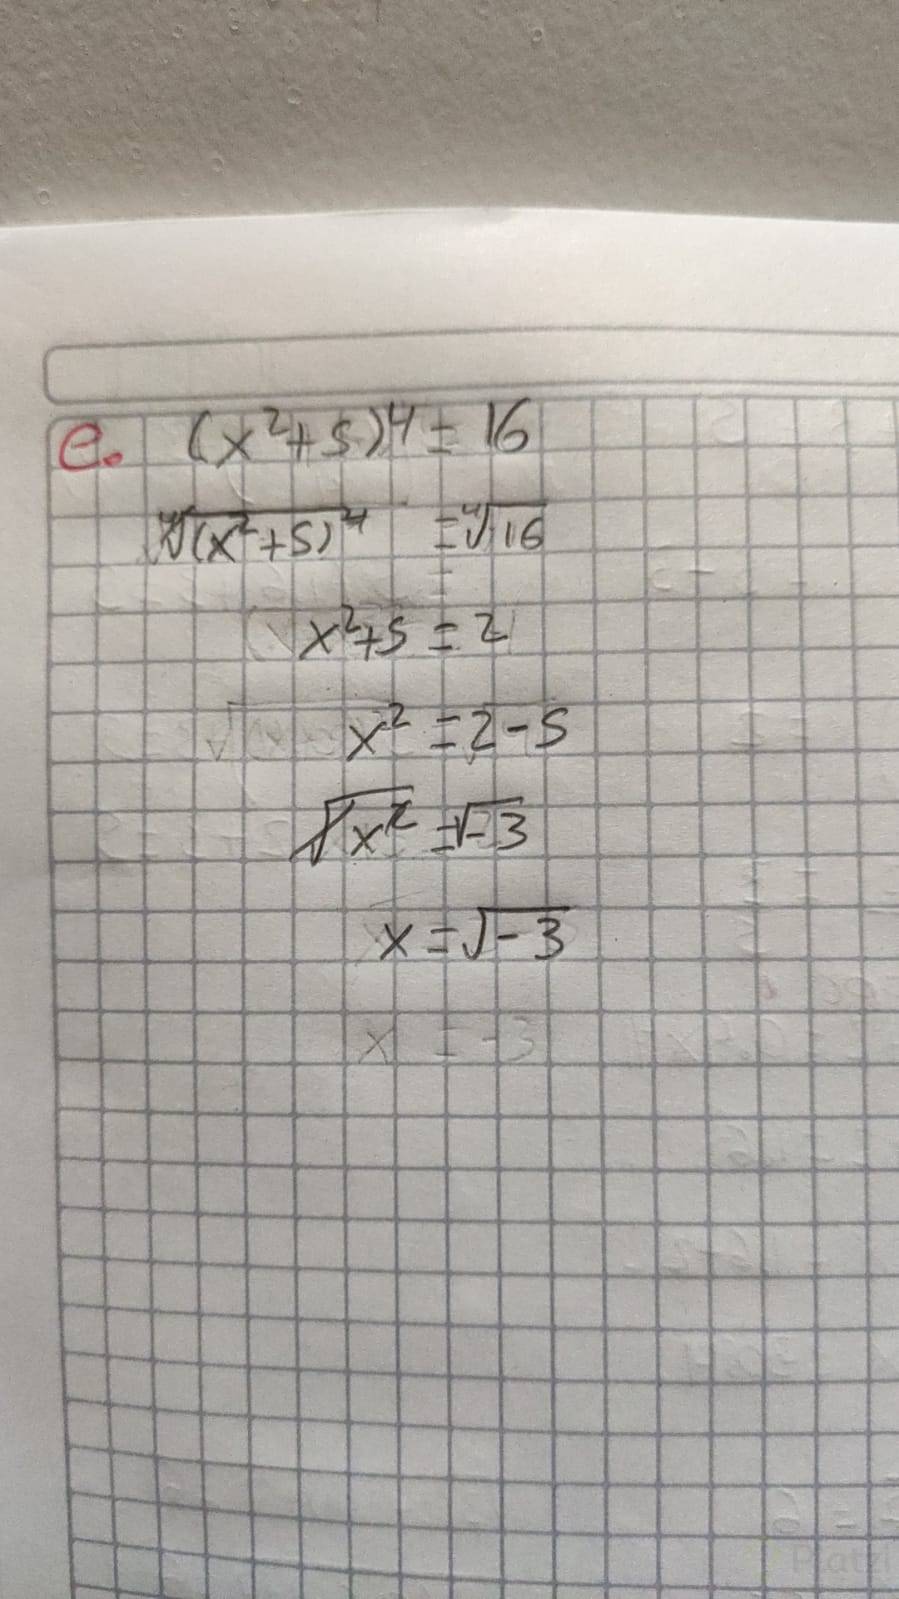 e. (x²+5)4 = 16
∜(x²+5)⁴ = ∜16
x²+5 = 2
x² = 2-5
√x² = √-3
x = √-3
x = -3
Platzi